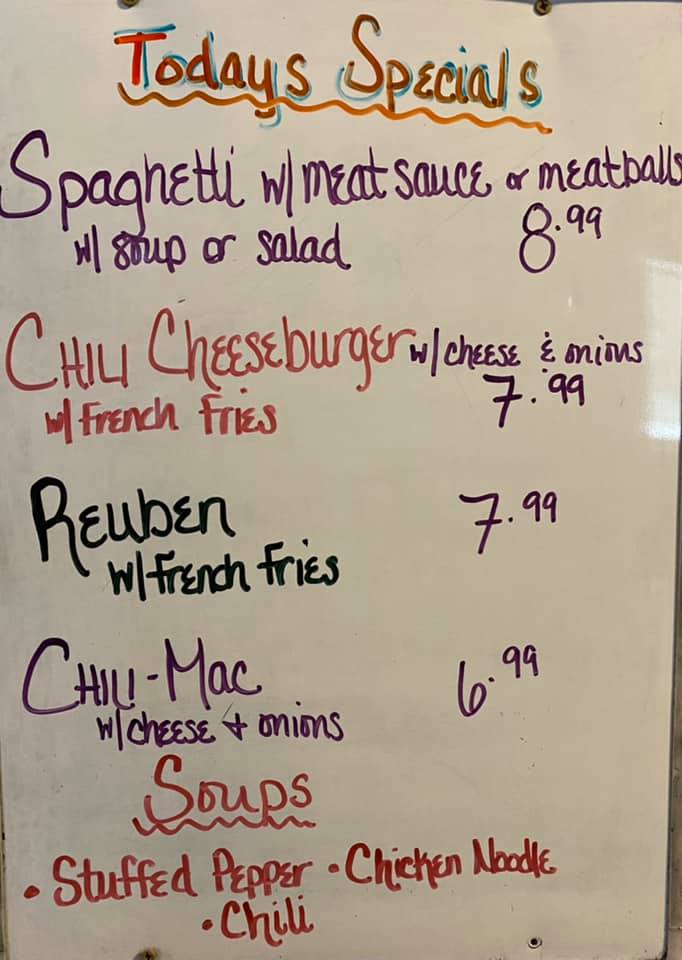 Todays Specials
Spaghetti w/ meat sauce or meatballs
w/ soup or salad 8.99
Chili Cheeseburger w/ cheese & onions
w/ French Fries 7.99
Reuben 7.99
w/ French Fries
Chili-Mac 6.99
w/ cheese + onions
Soups
• Stuffed Pepper • Chicken Noodle
• Chili